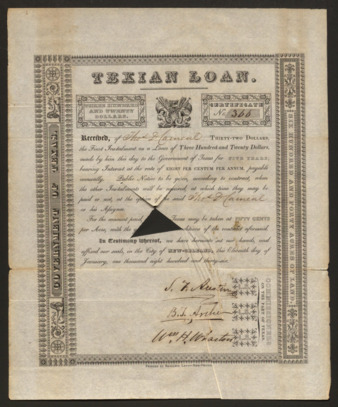 TEXIAN LOAN.
THREE HUNDRED
AND TWENTY
DOLLARS.
CERTIFICATE
No. 366
Received, of Thos D Carneal THIRTY-TWO DOLLARS,
the First Instalment on a Loan of Three Hundred and Twenty Dollars,
made by him this day to the Government of Texas for FIVE YEARS,
bearing Interest at the rate of EIGHT PER CENTUM PER ANNUM, payable
annually. Public Notice to be given, according to contract, when
the other Instalments will be required, at which time they may be
paid or not, at the option of the said Thos D Carneal
or his Assigns.
For the amount paid, Texas may be taken at FIFTY CENTS
per Acre, with the of the contract aforesaid.
In Testimony whereof, we have hereunto set our hands, and
affixed our seals, in the City of NEW-ORLEANS, the Eleventh day of
January, one thousand eight hundred and thirty-six.
S. F. Austin
B. T. Archer
Wm H. Wharton
COMMISSIONERS
ON THE PART OF TEXAS.
GOVERNMENT OF TEXAS
SIX HUNDRED AND FORTY ACRES OF LAND.